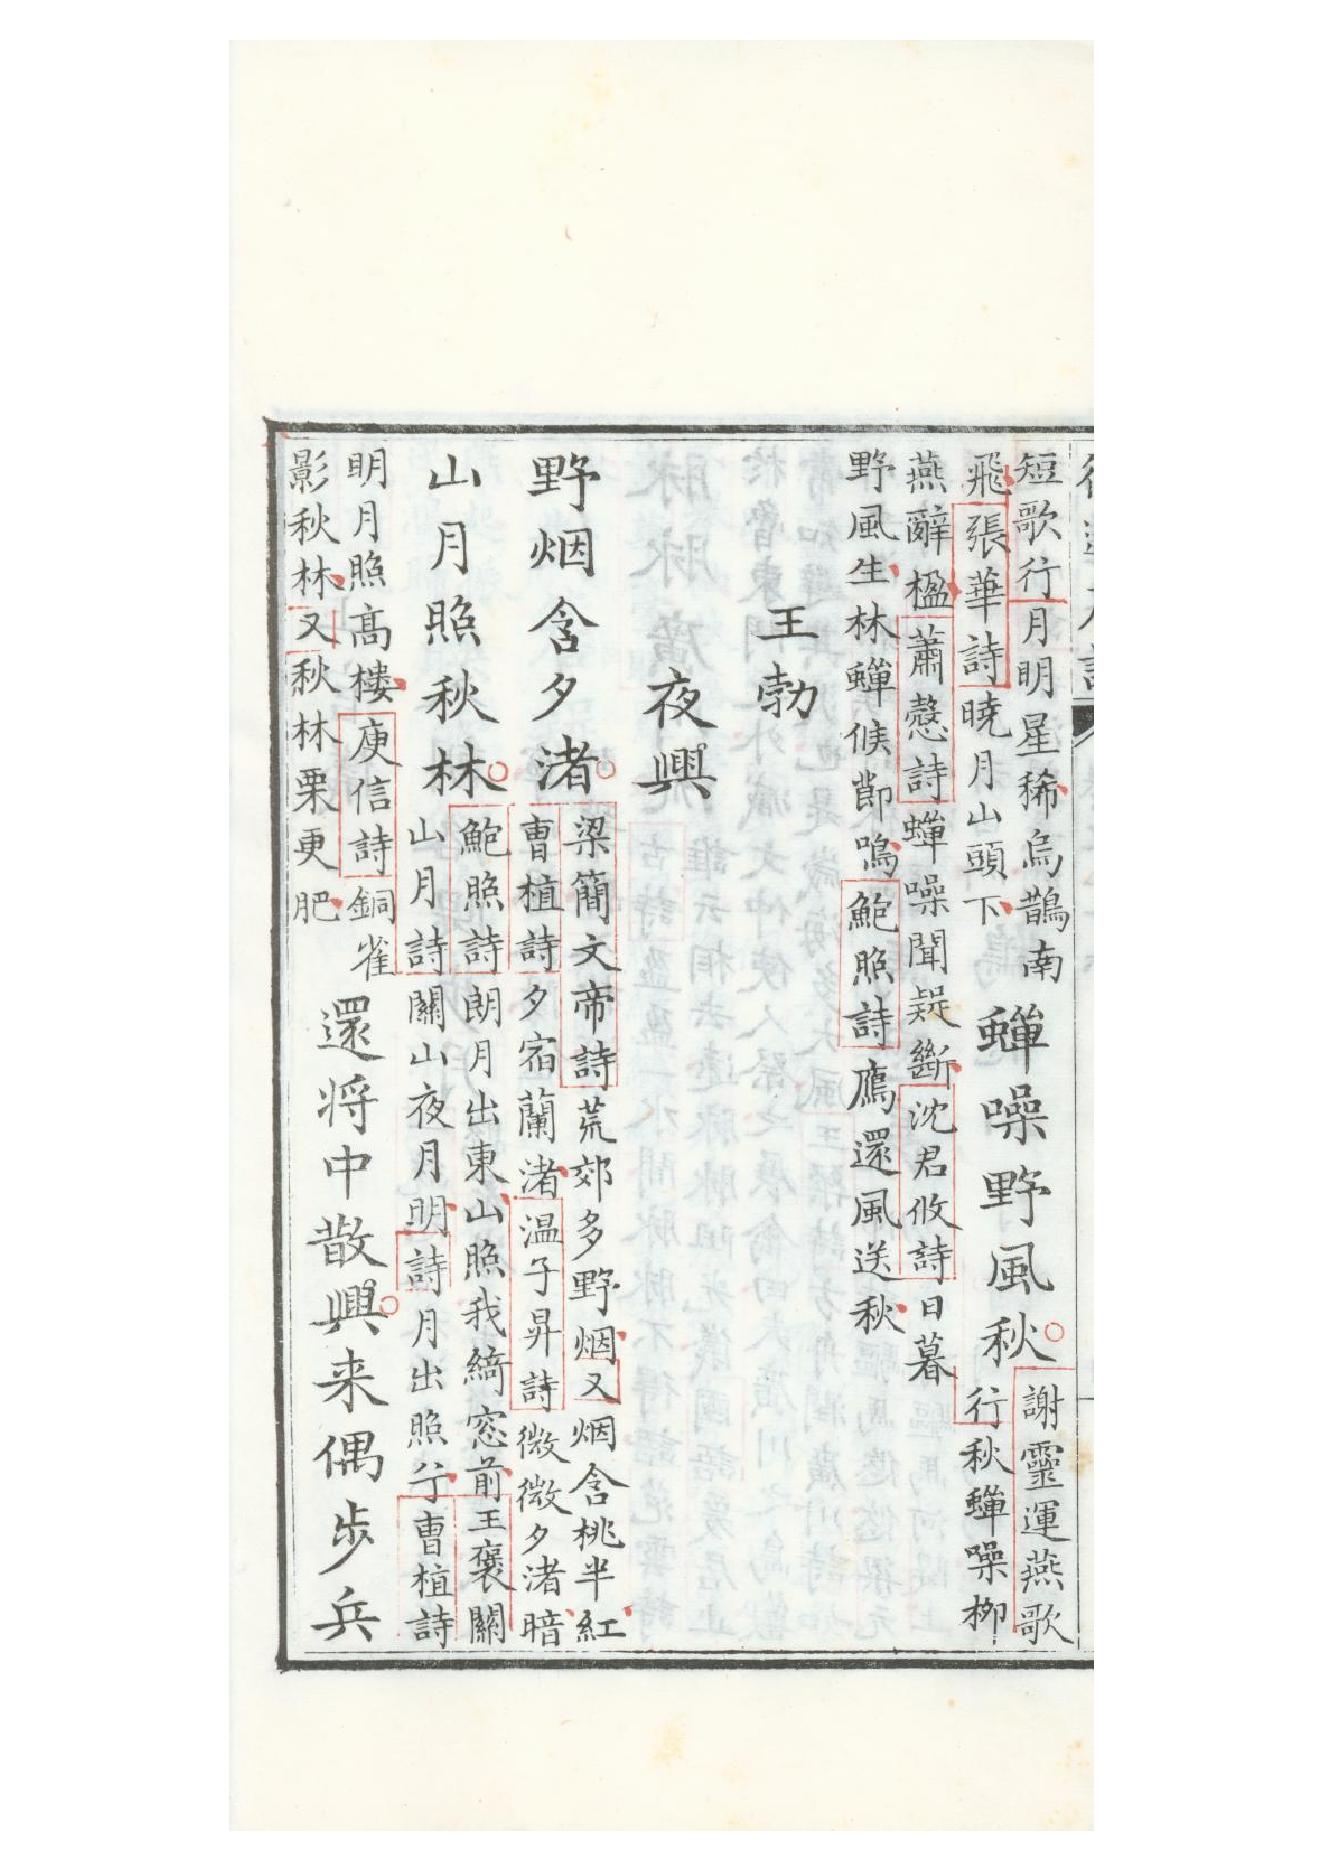 短歌行月明星稀烏鵲南
飛張華詩曉月山頭下
蟬噪野風秋
謝靈運燕歌
行秋蟬噪柳
燕辭楹蕭愨詩蟬噪聞疑斷沈君攸詩日暮
野風生林蟬候節鳴鮑照詩鴈還風送秋
王勃
夜興
野烟含夕渚
梁簡文帝詩荒郊多野烟又烟含桃半紅
曹植詩夕宿蘭渚温子昇詩微微夕渚暗
山月照秋林
鮑照詩朗月出東山照我綺窓前王褒關
山月詩關山夜月明詩月出照兮曹植詩
明月照高樓庾信詩銅雀
影秋林又秋林栗更肥
還将中散興来偶步兵